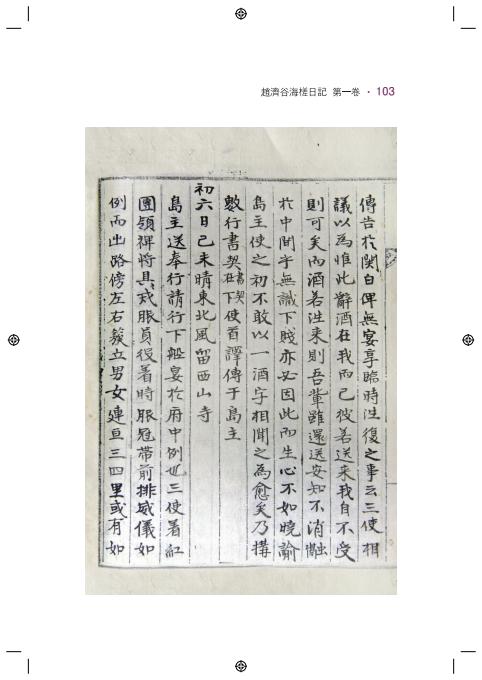 趙濟谷海槎日記 第一卷 · 103
傳告於関白俾無宴享臨時往復之事云三使相
議以為惟此辭酒在我而已彼若送来我自不受
則可矣而酒若往来則吾輩雖還送安知不消融
於中間乎無識下賤亦必因此而生心不如曉諭
島主使之初不敢以一酒字相聞之為愈矣乃搆
數行書契書契在下使首譯傳于島主
初六日己未晴東北風留西山寺
島主送奉行請行下船宴於府中例也三使着紅
團領裨將具戎服員役着時服冠帶前排威儀如
例而出路傍左右簇立男女連亘三四里或有如